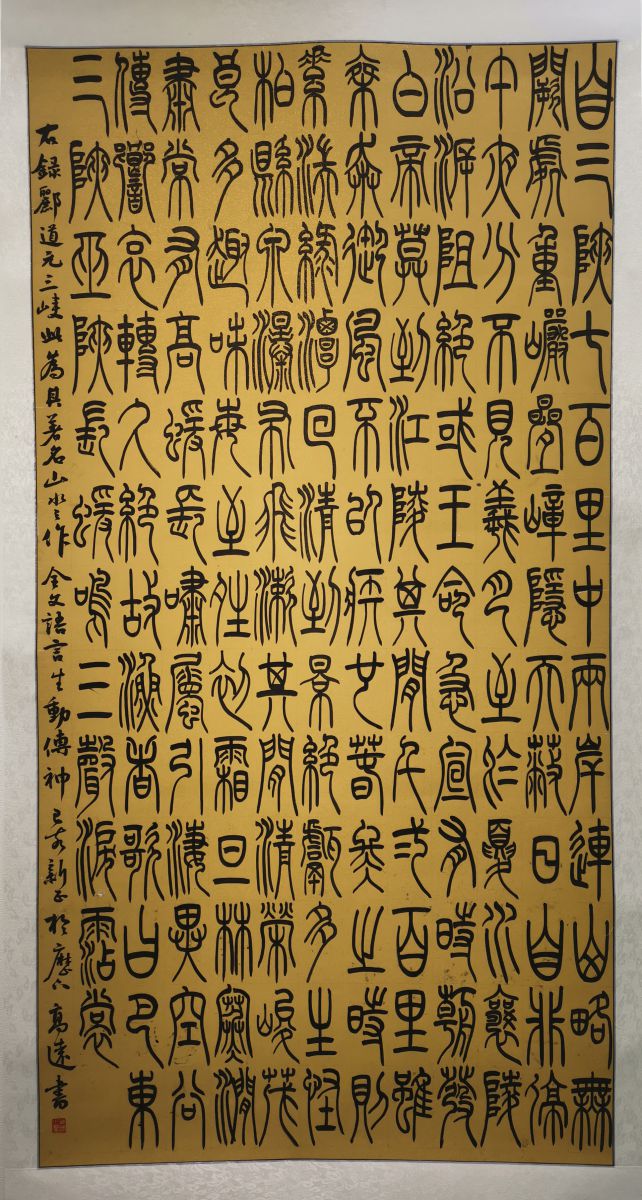 自三陝七百里中兩岸連山略無
闕處重巖疊嶂隱天蔽日自非停
午夜分不見羲月至於夏水襄陵
沿泝阻絕或王命急宣有時朝發
白帝莫到江陵其間千二百里雖
乘奔御風不以疾也春冬之時則
素湍綠潭回清到景絕巘多生怪
柏縣泉瀑布飛漱其間清榮峻茂
良多趣味每至晴初霜旦林寒澗
肅常有高蝯長嘯屬引淒異空谷
傳響哀轉久絕故漁者歌曰巴東
三陝巫陝長蝯鳴三聲淚霑裳
右錄酈道元三峽此為其著名山水之作全文語言生動傳神己亥新正於歷下高遠書